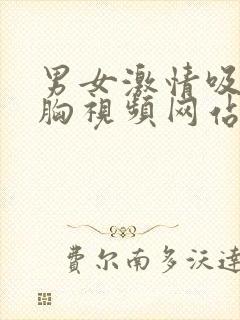 男女激情吸
胸視頻网佔
費尔南多沃達